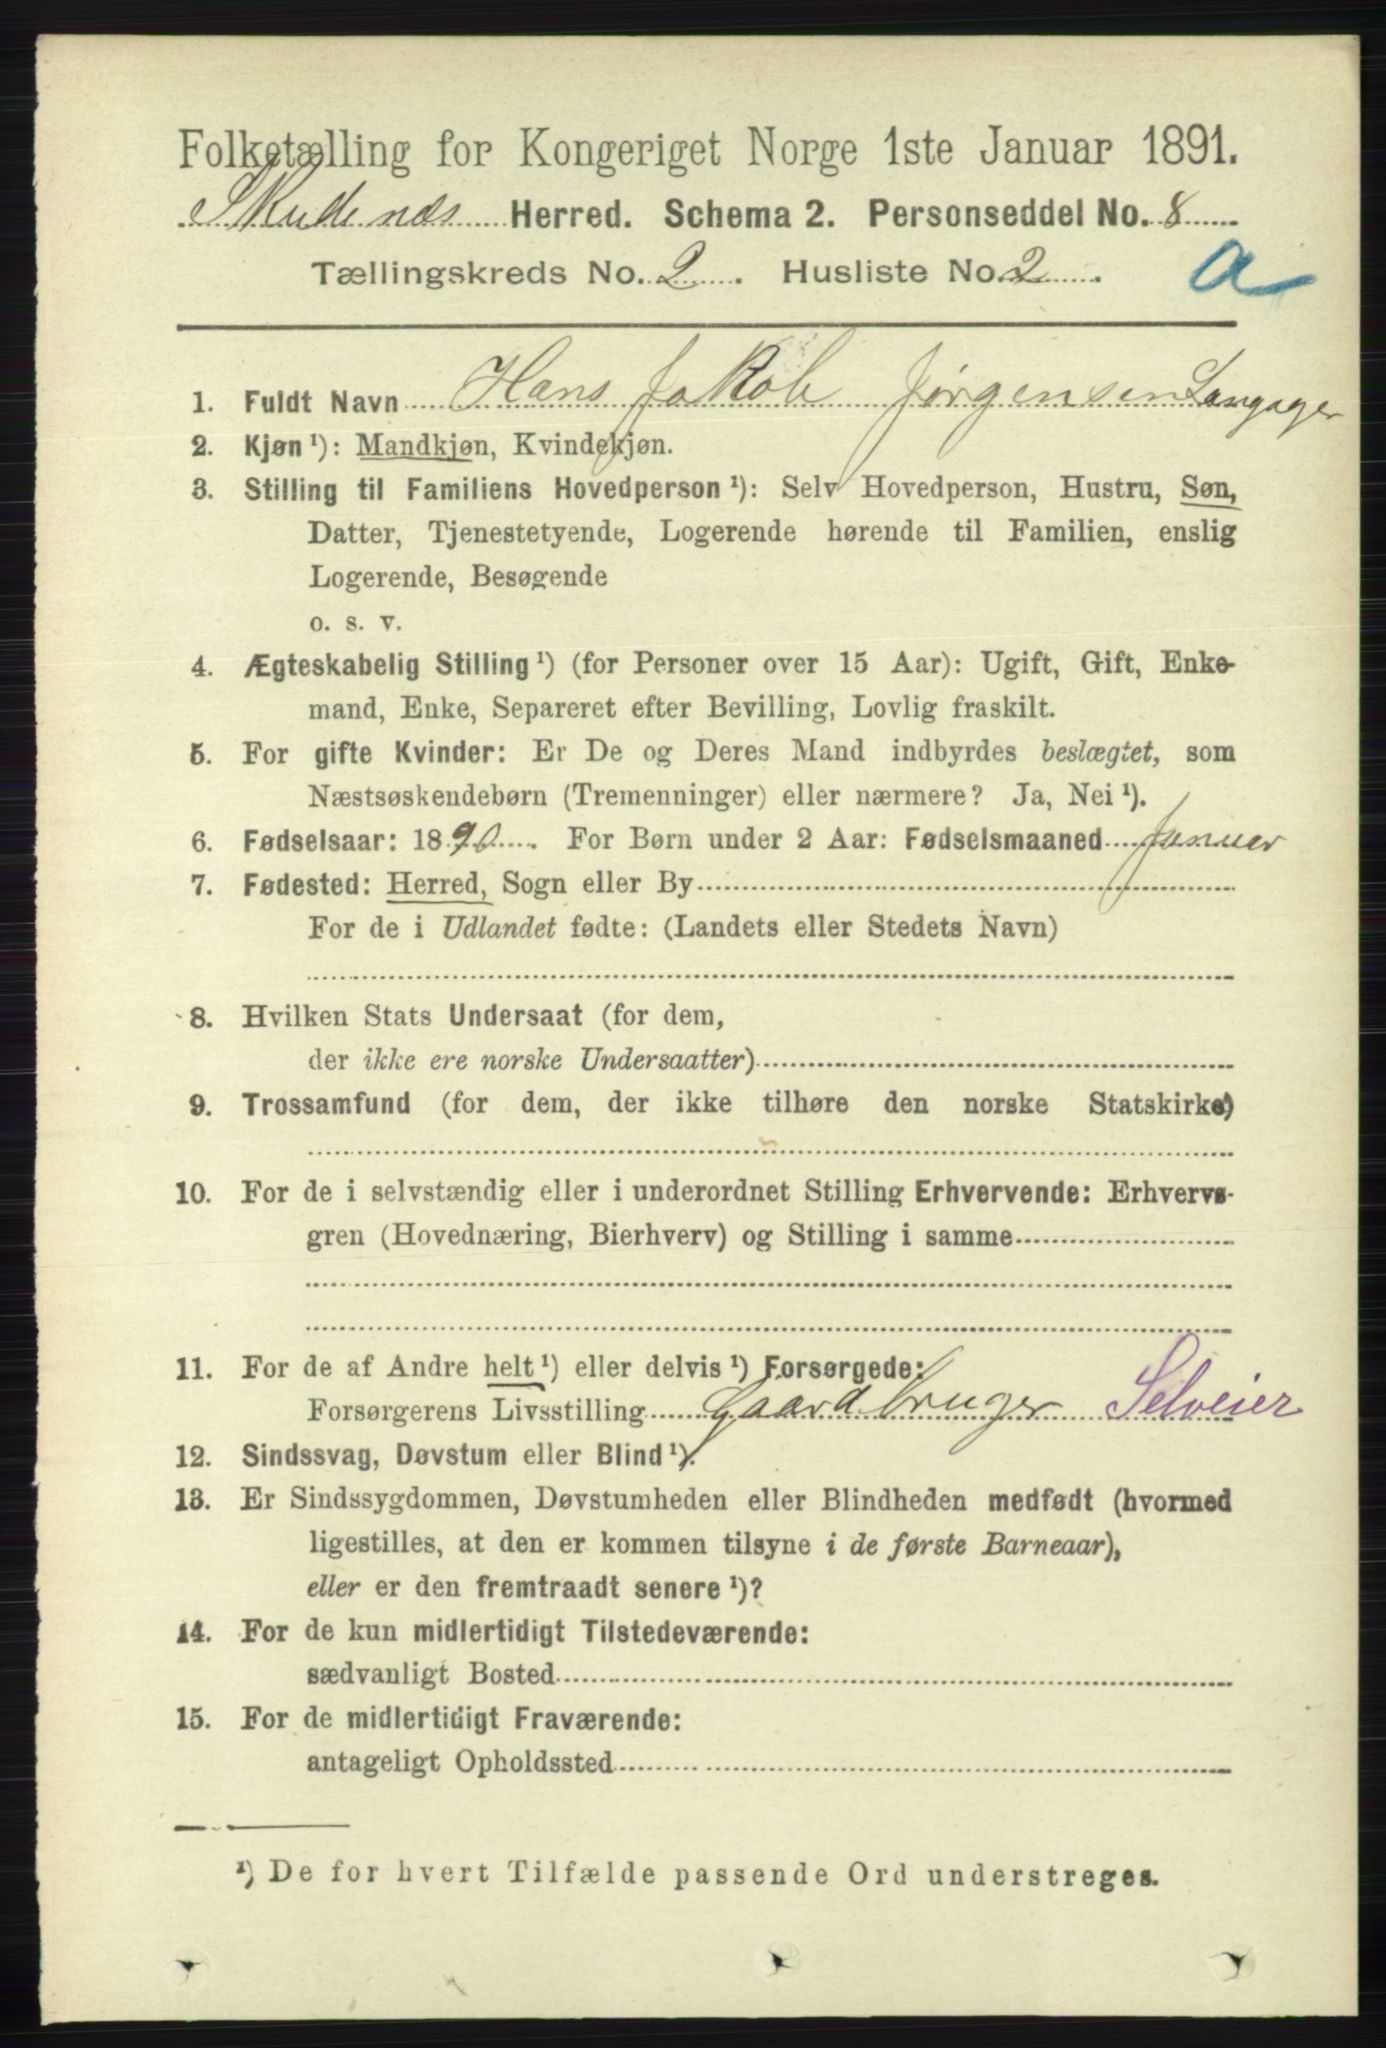 Folketælling for Kongeriget Norge 1ste Januar 1891.
Skudenæs Herred. Schema 2. Personseddel No. 8
Tællingskreds No. 2. Husliste No. 2. a
1. Fuldt Navn Hans Jakob Jørgensen Langager
2. Kjøn¹): Mandkjøn, Kvindekjøn.
3. Stilling til Familiens Hovedperson¹): Selv Hovedperson, Hustru, Søn,
Datter, Tjenestetyende, Logerende hørende til Familien, enslig
Logerende, Besøgende
o. s. v.
4. Ægteskabelig Stilling¹) (for Personer over 15 Aar): Ugift, Gift, Enke-
mand, Enke, Separeret efter Bevilling, Lovlig fraskilt.
5. For gifte Kvinder: Er De og Deres Mand indbyrdes beslægtet, som
Næstsøskendebørn (Tremenninger) eller nærmere? Ja, Nei¹).
6. Fødselsaar: 1890. For Børn under 2 Aar: Fødselsmaaned Januar
7. Fødested: Herred, Sogn eller By
For de i Udlandet fødte: (Landets eller Stedets Navn)
8. Hvilken Stats Undersaat (for dem,
der ikke ere norske Undersaatter)
9. Trossamfund (for dem, der ikke tilhøre den norske Statskirke)
10. For de i selvstændig eller i underordnet Stilling Erhvervende: Erhvervs-
gren (Hovednæring, Bierhverv) og Stilling i samme
11. For de af Andre helt¹) eller delvis¹) Forsørgede:
Forsørgerens Livsstilling Gaardbruger Selveier
12. Sindssvag, Døvstum eller Blind¹).
13. Er Sindssygdommen, Døvstumheden eller Blindheden medfødt (hvormed
ligestilles, at den er kommen tilsyne i de første Barneaar),
eller er den fremtraadt senere¹)?
14. For de kun midlertidigt Tilstedeværende:
sædvanligt Bosted
15. For de midlertidigt Fraværende:
antageligt Opholdssted
¹) De for hvert Tilfælde passende Ord understreges.